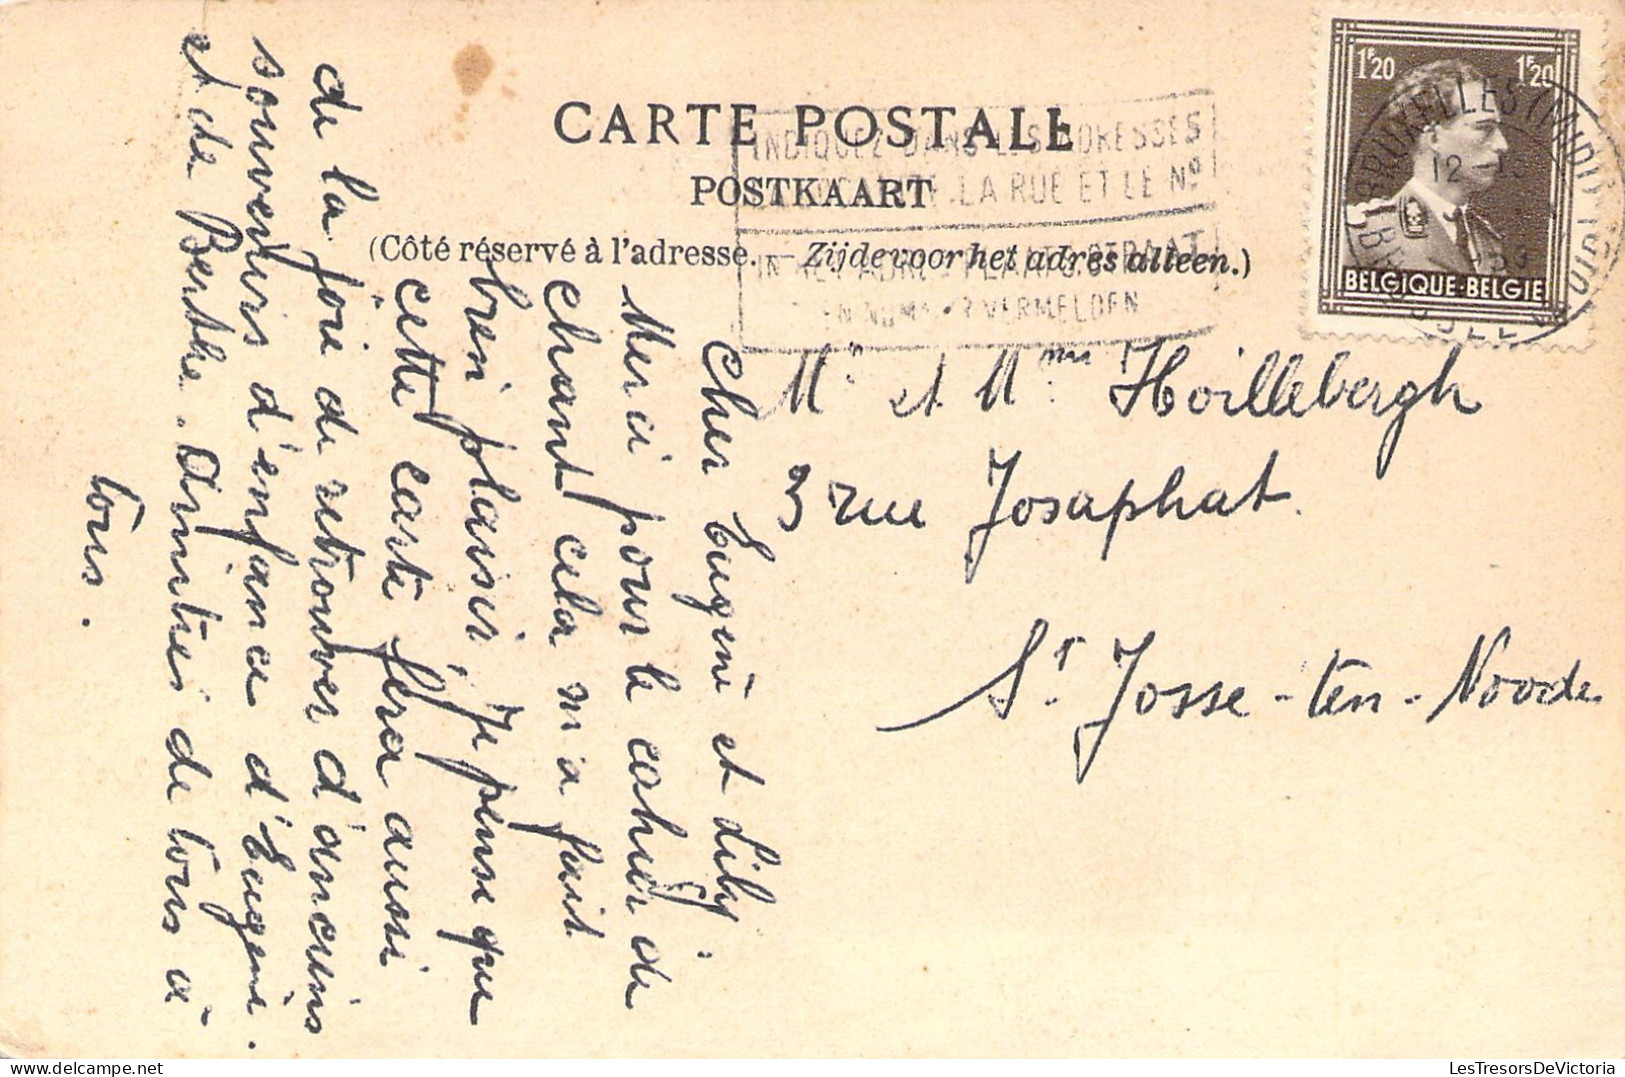 CARTE POSTALE
POSTKAART
(Côté réservé à l'adresse. — Zijde voor het adres alleen.)
INDIQUEZ DANS LES ADRESSES
LA RUE ET LE Nº
EN NUMMER VERMELDEN
1F20 1F20
BELGIQUE·BELGIE
BRUXELLES (MIDI)
12-13
Mr et Mme Hoillebergh
3 rue Josaphat.
St Josse-ten-Noode
Cher Eugène et Lily
Merci pour le cahier de
chant cela m'a fait
bien plaisir, Je pense que
cette carte fera aussi
de la joie de retrouver d'anciens
souvenirs d'enfance d'Eugène.
et de Berthe. Amitiés de tous à
tous.
LesTresorsDeVictoria